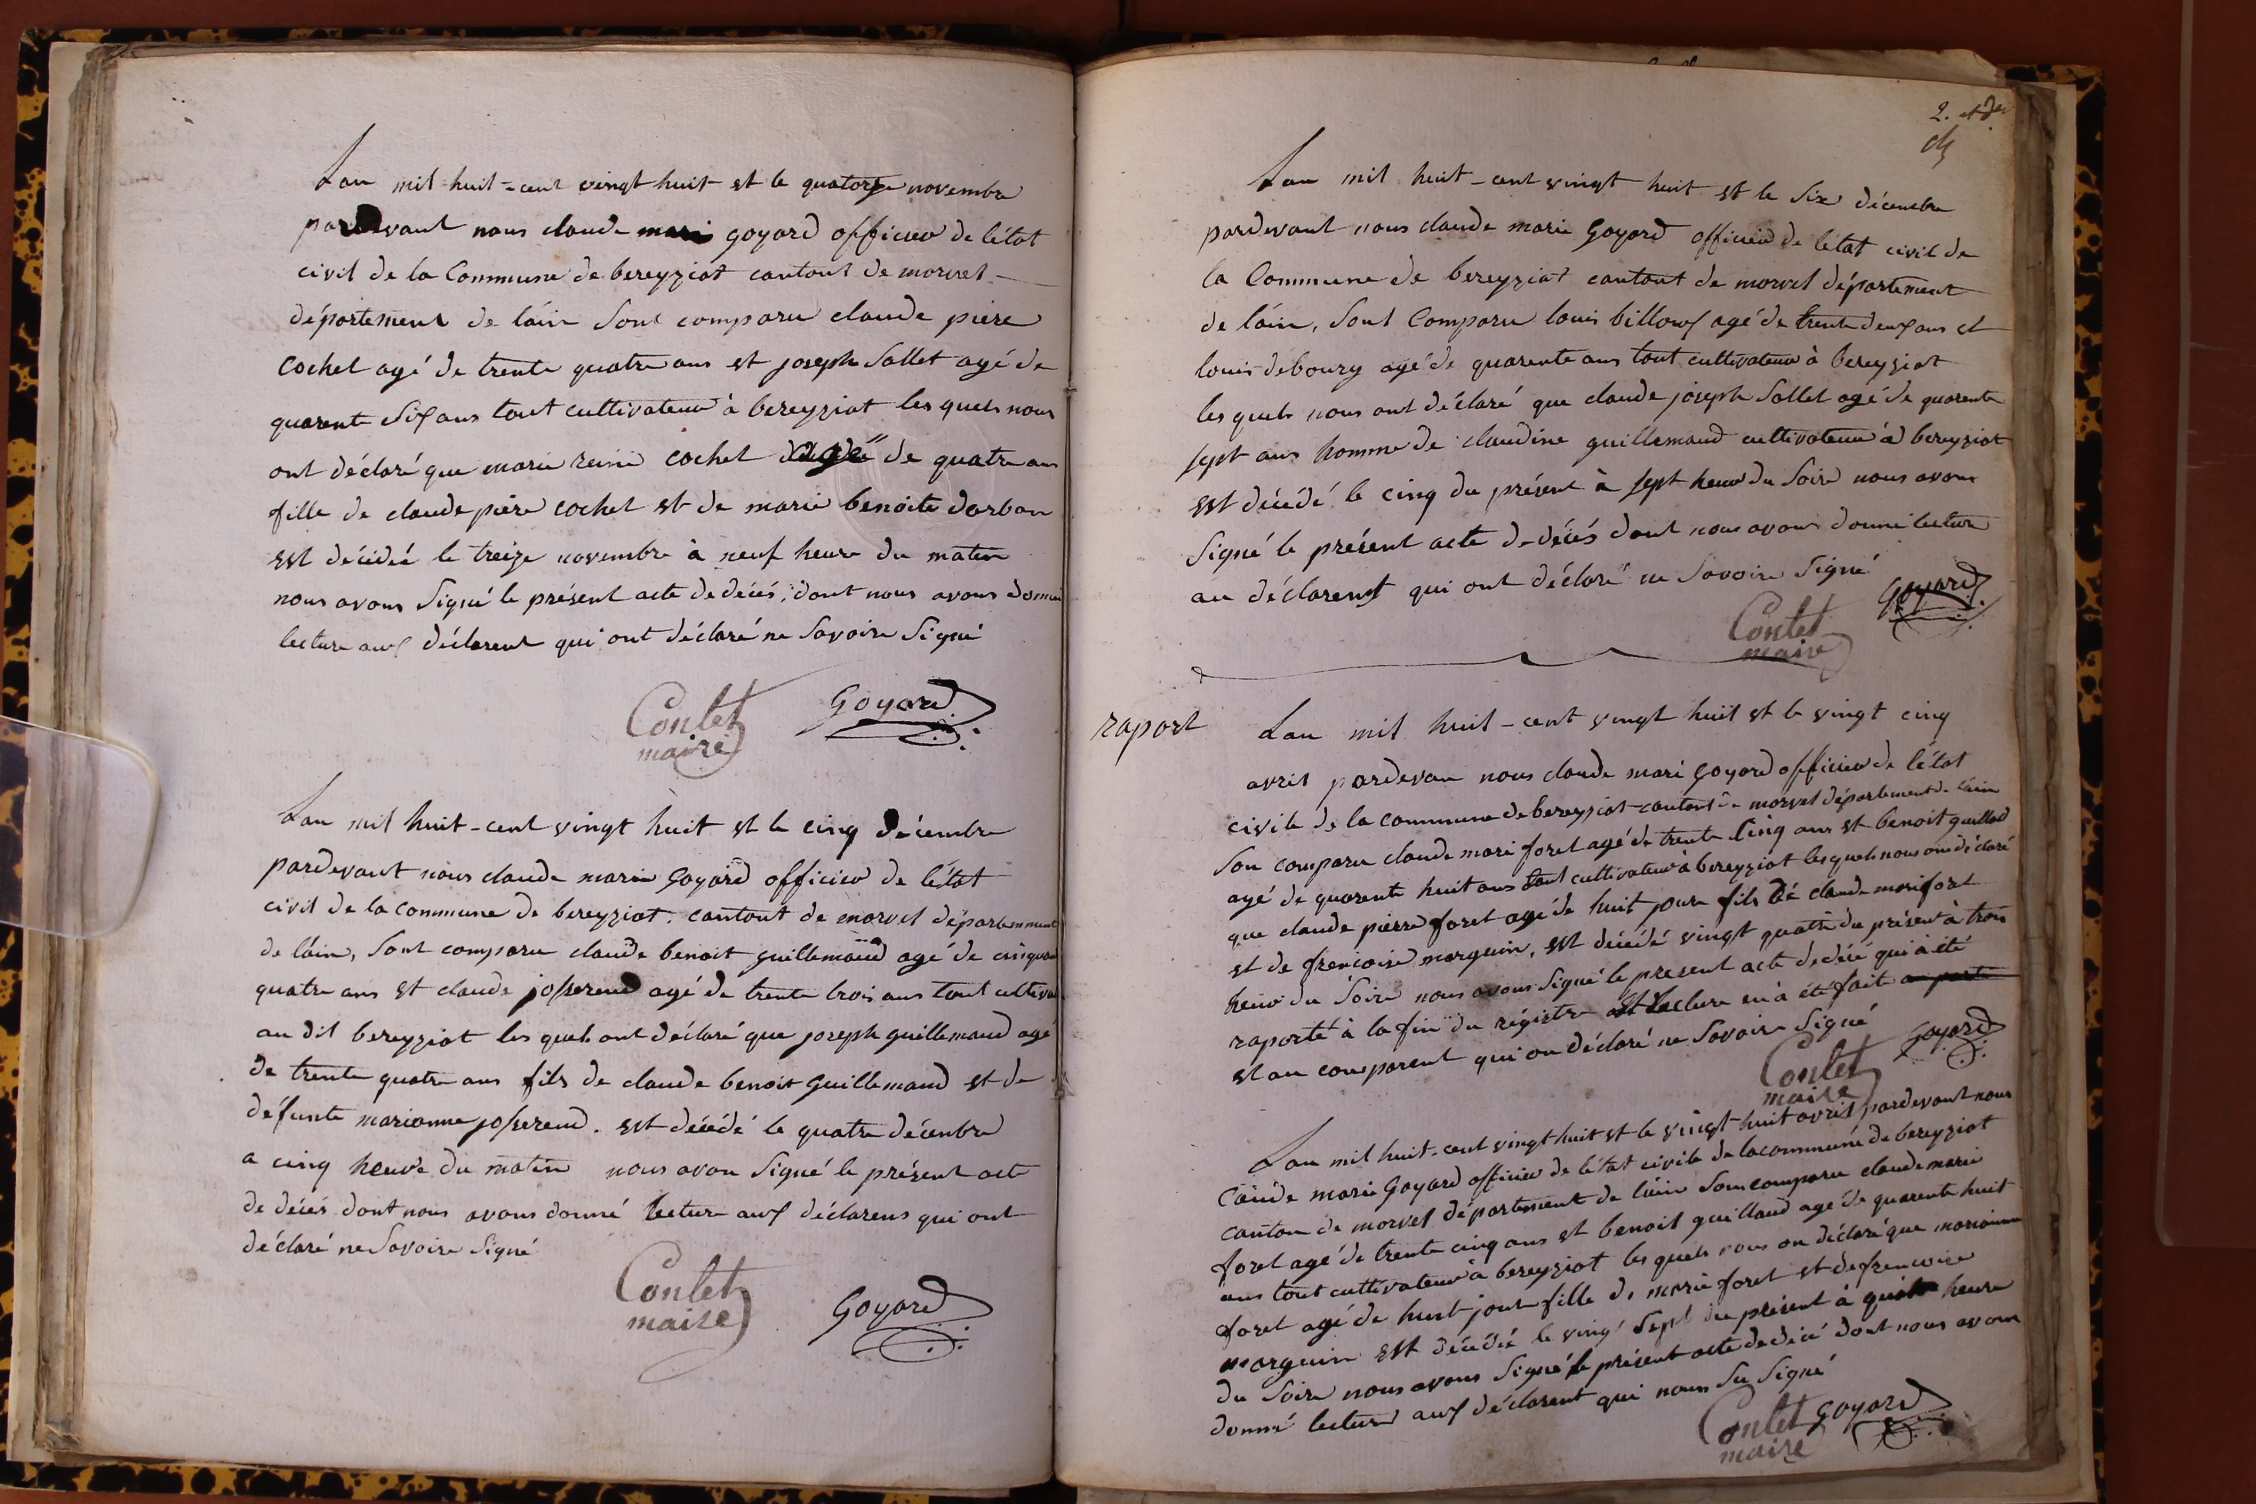 Lan mil huit-cent vingt huit et le quatorze novembre
pardevant nous claude mari goyard officier de l'état
civil de la Commune de bereyziat cantont de morvel
département de láin Sont comparu claude piere
cochet agé de trente quatre ans et joseph Sallet agé de
quarent Six ans tout cultivateur à bereyziat les quels nous
ont déclaré que marie reine cochet agé de quatre ans
fille de claude piére cochet et de marie benoite dorban
est décédeé le treize novembre à neuf heure du matin
nous avons Signé le présent acte de décés, dont nous avons donné
lecture aux déclarent qui ont déclaré ne Savoire Signé
Contet
maire
Goyard
Lan mil huit-cent vingt huit et le cinq décembre
pardevant nous claude marie Goyard officier de l'état
civil de la commune de bereyziat. cantont de morvel département
de láin, Sont comparu claude benoit guillemaud agé de cinquan
quatre ans et claude josserend agé de trente trois ans tout cultiva
au dit bereyziat les quels ont déclaré que joseph guillemaud agé
de trente quatre ans fils de claude benoit guillemaud et de
défunte marianne josserend. est décédé le quatre décenbre
a cinq heure du matin nous avon Signé le présent acte
de décés dont nous avons donné lecture aux déclarens qui ont
déclaré ne Savoire Signé
Contet
maire
Goyard
2. et der
Lan mil huit-cent vingt huit et le Six décembre
pardevant nous claude marie Goyard officier de létat civil de
la Commune de bereyziat cantont de morvel département
de láin, Sont Comparu louis billoux agé de trente deux ans et
louis debourg agé de quarente ans tout cultivateur à bereyziat
les quels nous ont déclaré que claude joseph Sallet agé de quarente
sept ans homme de claudine guillemaud cultivateur à bereyziat
est décédé le cinq du présent à sept heur du Soire nous avons
Signé le présent acte de décés dont nous avons donné lecture
au déclarent qui ont déclaré ne Savoire Signé
Contet
maire
Goyard
raport
Lan mil huit-cent vingt huit et le vingt cinq
avril pardevan nous claude mari goyard officier de l'état
civile de la commune de bereyziat cantont de morvel département de láin
Son comparu claude mari foret agé de trente cinq ans et benoit guillod
agé de quarente huit ans tout cultivateur à bereyziat les quels nous on déclaré
que claude pierre foret agé de huit jour fils de claude mari foret
et de frencoise marguin, est décédé vingt quatre du présent à trois
heur du Soire nous avons Signé le présent acte de décé qui à été
raporté à la fin du régistre et lecture en à été fait
et au comparent qui on déclaré ne Savoire Signé
Contet
maire
Goyard
Lan mil huit-cent vingt huit et le vingt huit avril pardevant nous
Claude marie Goyard officier de l'état civile de la commune de bereyziat
canton de morvel département de láin Son comparu claude marie
foret agé de trente cinq ans et benoit guillaud agé de quarente huit
ans tout cultivateur à bereyziat les quels nous on déclaré que marianne
foret agé de huit jour fille de marie foret et de frencoise
marguin est décédeé le vingt Sept du présent à heure
du Soire nous avons Signé le présent acte de décé dont nous avon
donné lecture aux déclarent qui nons Su Signé
Contet
maire
Goyard